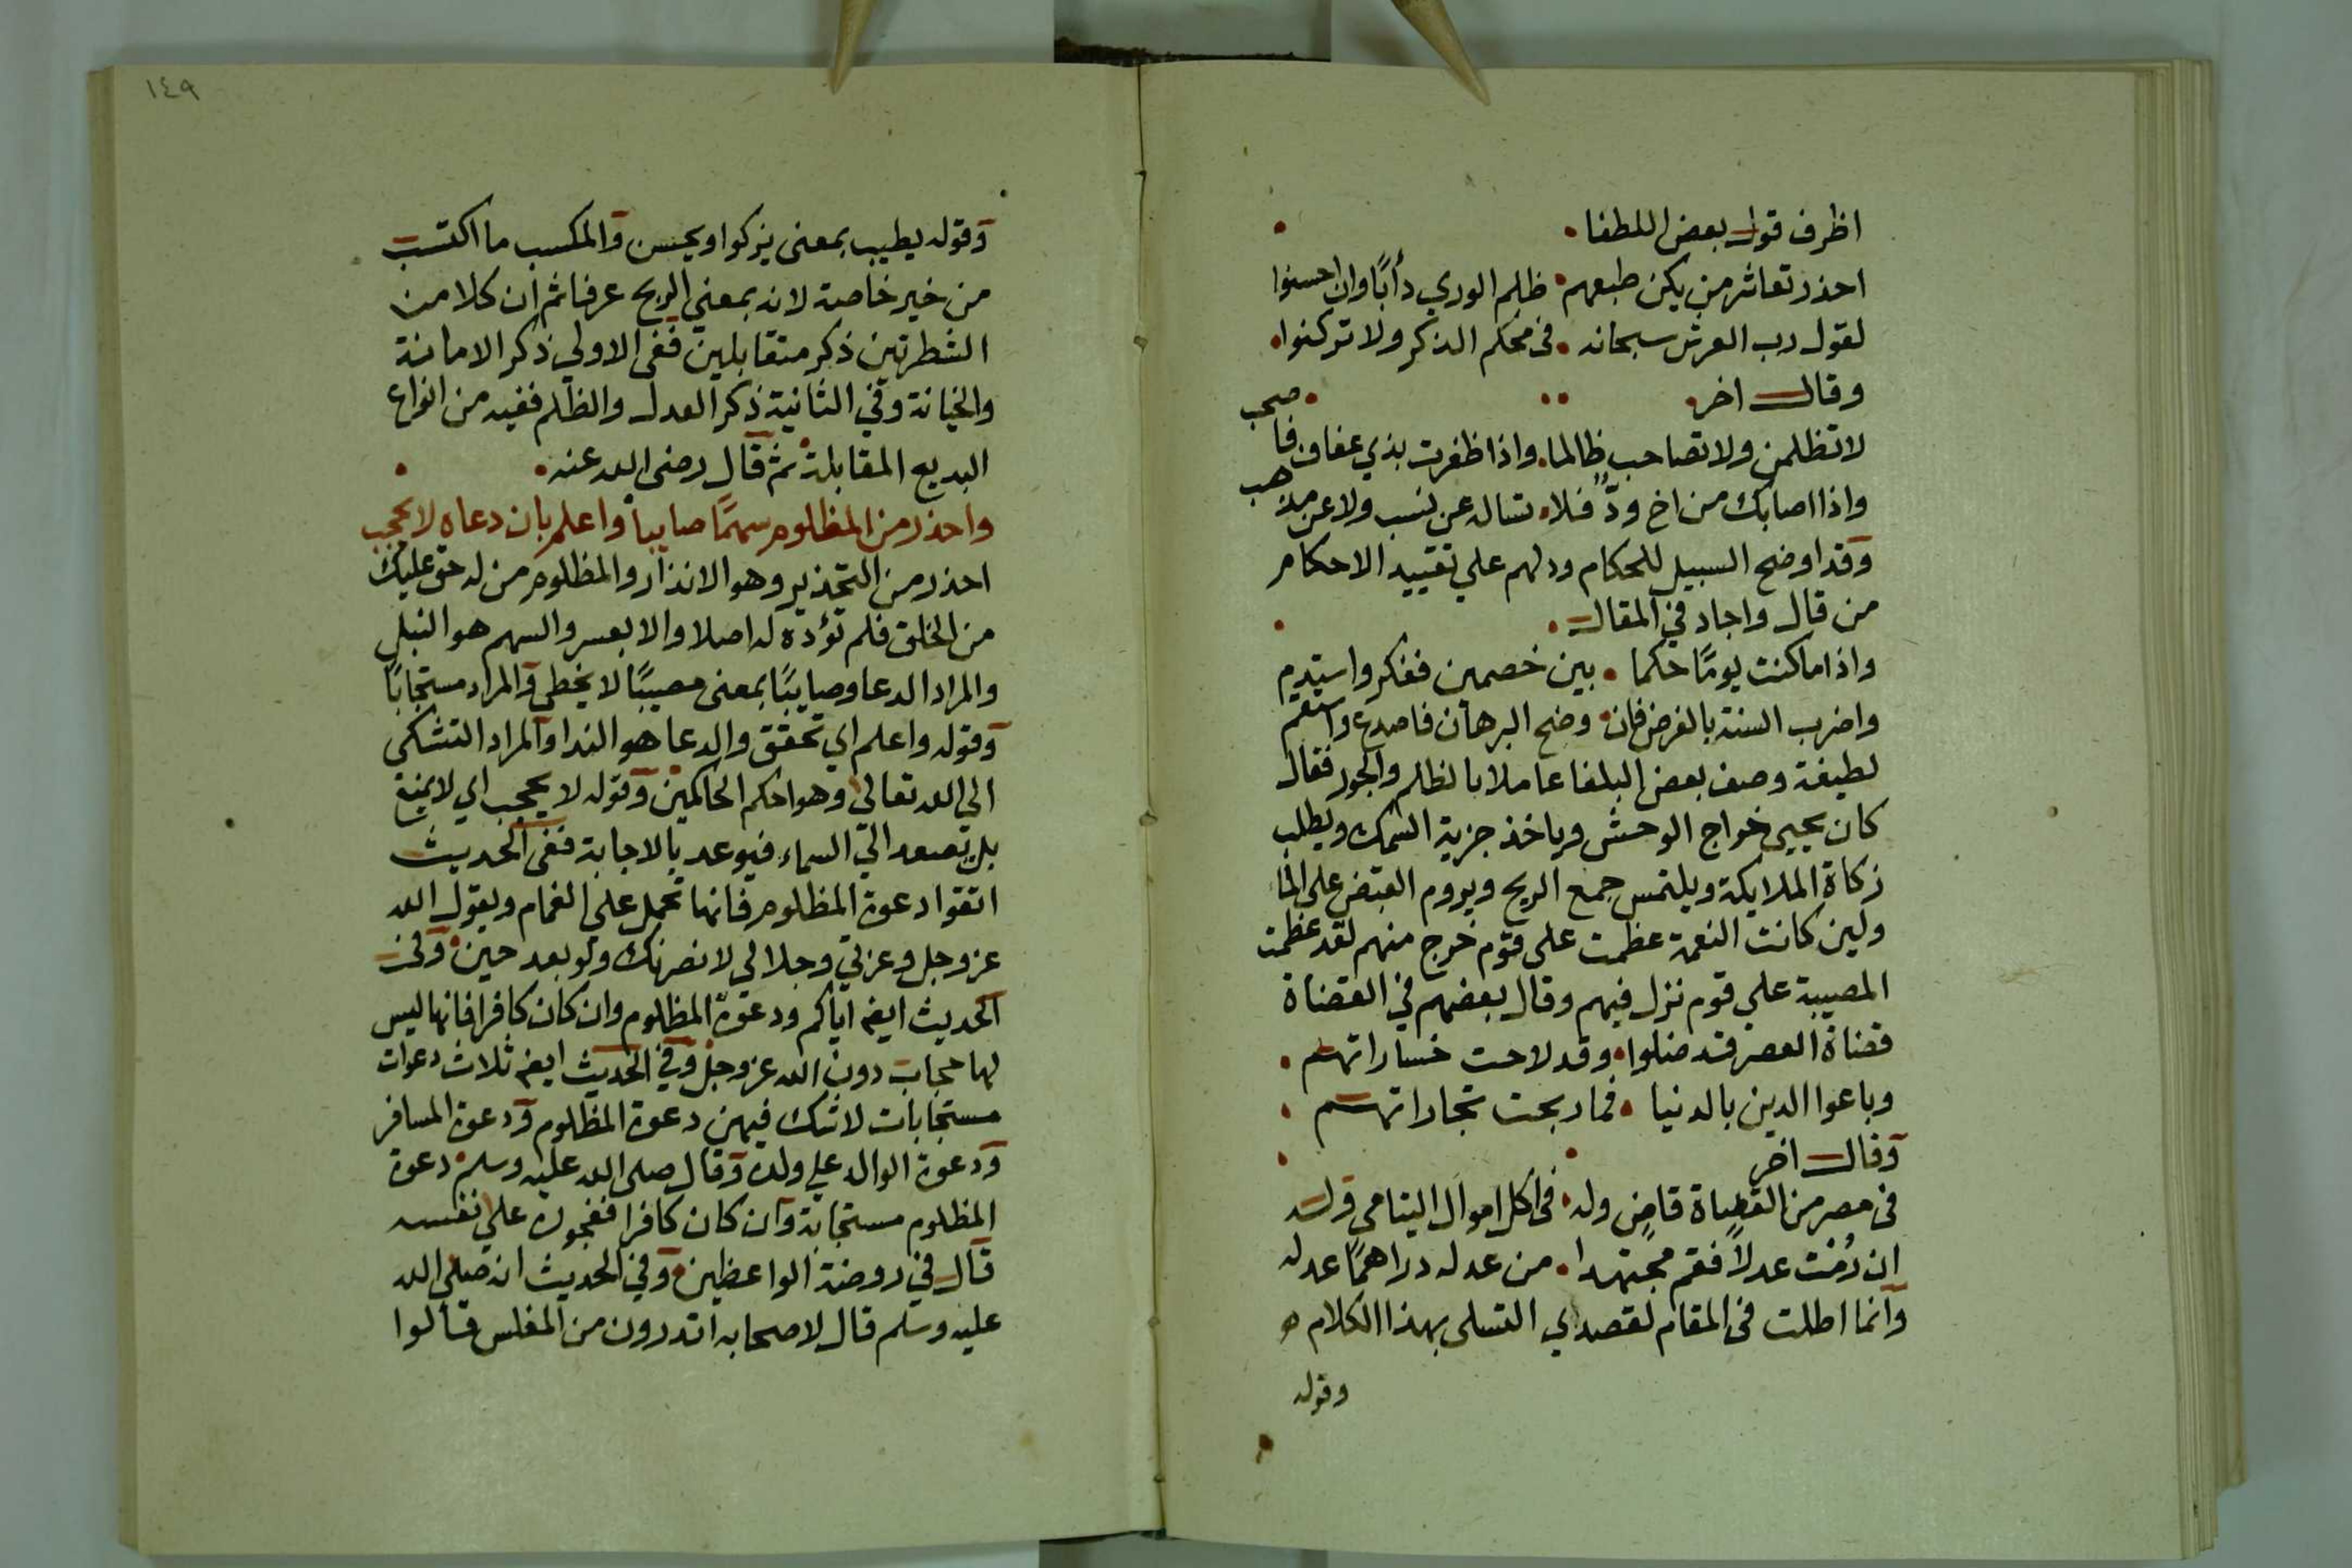 اظرف قول بعض اللطفا
احذر تعاشر من يكن طبعهم ظلم الوري دأبًا وان احسنوا
لقول رب العرش سبحانه في محكم الذكر ولا تركنوا
وقال اخر
لا تظلمن ولا تصاحب ظالما واذا ظفرت بذي عفاف فاصحب
واذا اصابك من اخ ودّ فلا تساله عن نسب ولا عن مذهب
وقد اوضح السبيل للحكام ودلهم علي تقييد الاحكام
من قال واجاد في المقال
واذا ما كنت يومًا حكما بين خصمين ففكر واستدم
واضرب السنة بالفرض فان وضح البرهان فاصدع واستقم
لطيفة وصف بعض البلغا عاملا بالظلم والجور فقال
كان يجيي خراج الوحش وياخذ جزية السمك ويطلب
زكاة الملايكة ويلتمس جمع الريح ويروم القبض علي الما
ولين كانت النعمة عظمت علي قوم خرج منهم لقد عظمت
المصيبة علي قوم نزل فيهم وقال بعضهم في القضاة
قضاة العصر قد ضلوا وقد لاحت خساراتهم
وباعوا الدين بالدنيا فما ربحت تجاراتهم
وقال اخر
في مصر من القضاة قاض وله في اكل اموال اليتامي وله
ان رُمْت عدلاً فقم مجتهدا من عد له دراهمًا عد له
وانما اطلت في المقام لقصدي التسلي بهذا الكلام
وقوله
١٤٩
وقوله يطيب بمعني يزكوا ويحسن والمكسب ما اكتسب
من خير خاصة لانه بمعني الربح عرفا ثم ان كلا من
الشطرتين ذكر متقابلين ففي الاولي ذكر الامانة
والخيانة وفي الثانية ذكر العدل والظلم ففيه من انواع
البديع المقابلة ثم قال رضي الله عنه
واحذر من المظلوم سهمًا صايبا واعلم بان دعاه لا يحجب
احذر من التحذير وهو الانذار والمظلوم من له حق عليك
من الخلق فلم تؤده له اصلا والا بعسر والسهم هو النبل
والمراد الدعا وصايبًا بمعني مصيبًا لا يخطي والمراد مستجابًا
وقوله واعلم اي تحقق والدعا هو الندا والمراد التشكي
الي الله تعالي وهو احكم الحاكمين وقوله لا يحجب اي لا يمنع
بل تصعد الي السماء فيوعد بالاجابة ففي الحديث
اتقوا دعوة المظلوم فانها تحمل علي الغمام ويقول الله
عز وجل وعزتي وجلالي لانصرنك ولو بعد حين وفي
الحديث ايضا اياكم ودعوة المظلوم وان كان كافرا فانها ليس
لها حجاب دون الله عز وجل وفي الحديث ايضا ثلاث دعوات
مستجابات لا شك فيهن دعوة المظلوم ودعوة المسافر
ودعوة الوالد علي ولده وقال صلي الله عليه وسلم دعوة
المظلوم مستجابة وان كان كافرا ففجوره علي نفسه
قال في روضة الواعظين وفي الحديث انه صلي الله
عليه وسلم قال لاصحابه اتدرون من المفلس قالوا